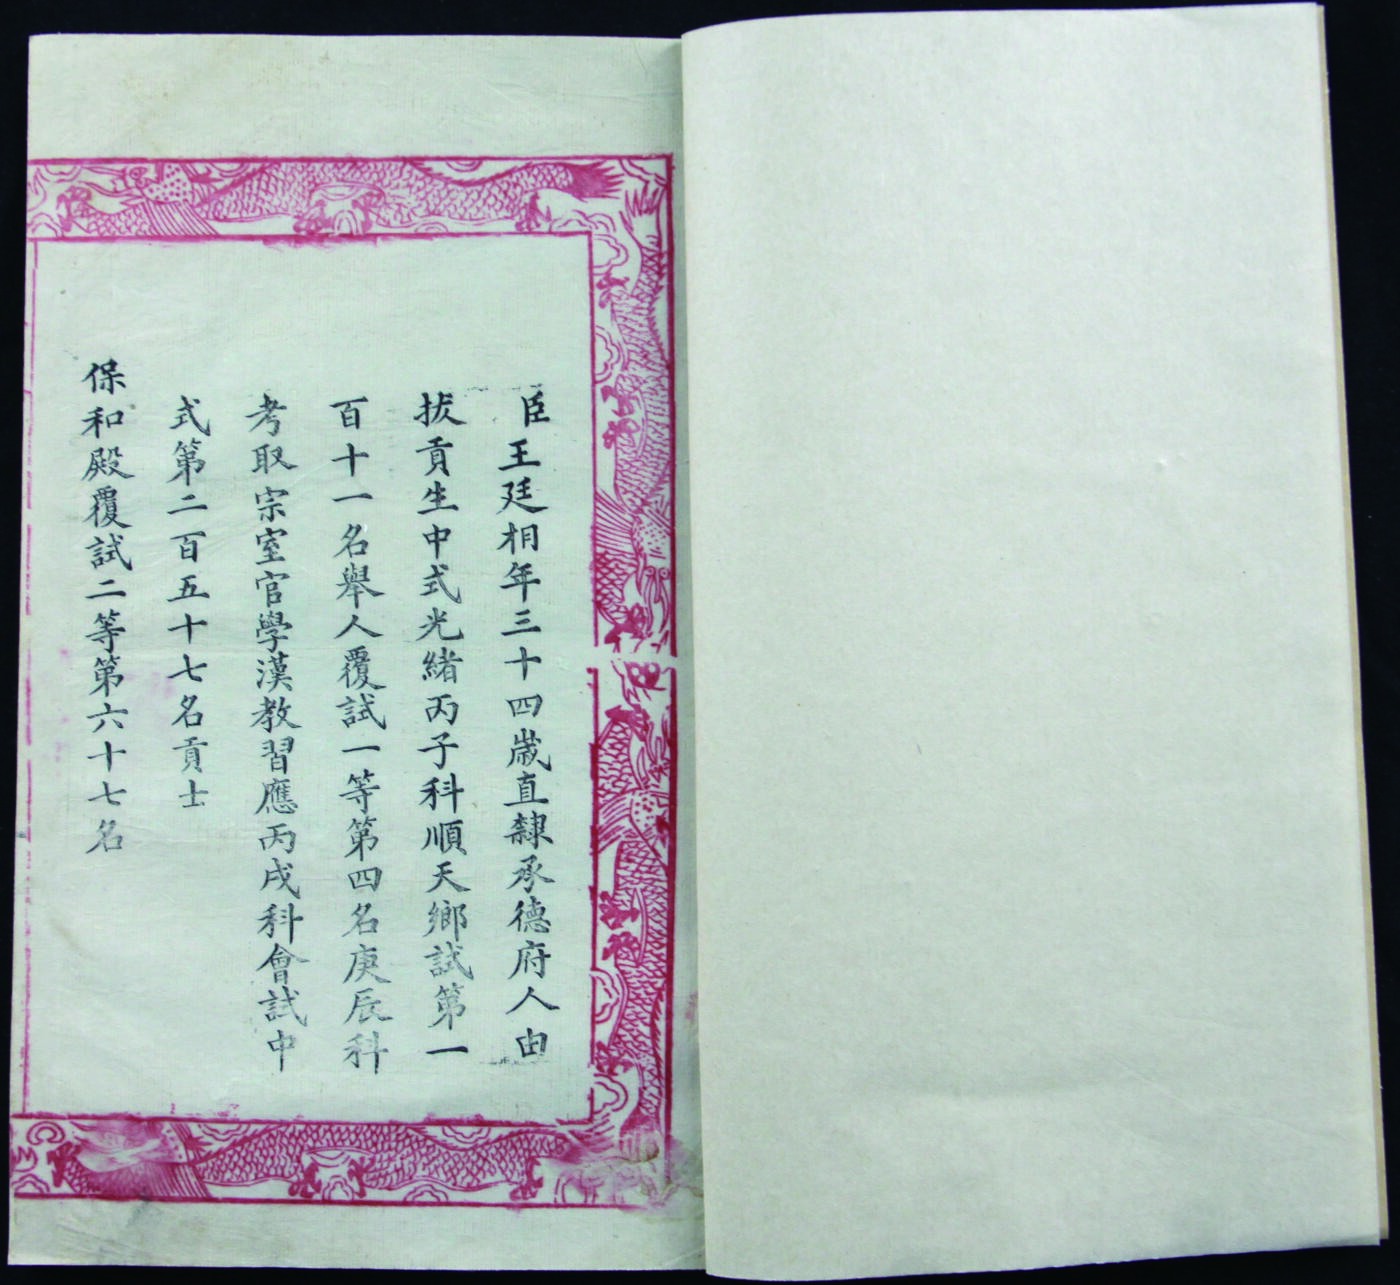 臣王廷相年三十四歲直隸承德府人由
拔貢生中式光緒丙子科順天鄉試第一
百十一名舉人覆試一等第四名庚辰科
考取宗室官學漢教習應丙戌科會試中
式第二百五十七名貢士
保和殿覆試二等第六十七名